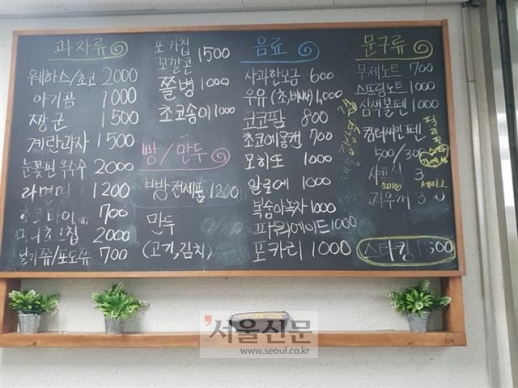 과자류
웨하스/초코 2000
아기곰 1000
짱군 1500
계란과자 1500
눈꽃핀 옥수수 2000
라면땅 1200
700
2000
/포도유 700
포카칩
꼬깔콘 1500
쫄병 1000
초코송이 1000
빵/만두
빵 전제품 1200
만두
(고기, 김치)
음료
사과한모금 600
우유 (초,바,딸) 1,000
코코팜 800
초코에몽캔 700
모히또 1000
알로에 1000
복숭아녹차 1000
파워에이드 1000
포카리 1000
문구류
무제노트 700
스프링노트 1000
삼색볼펜 1000
컴퓨터싸인펜
500/300
지우개 300
스타킹
서울신문
www.seoul.co.kr